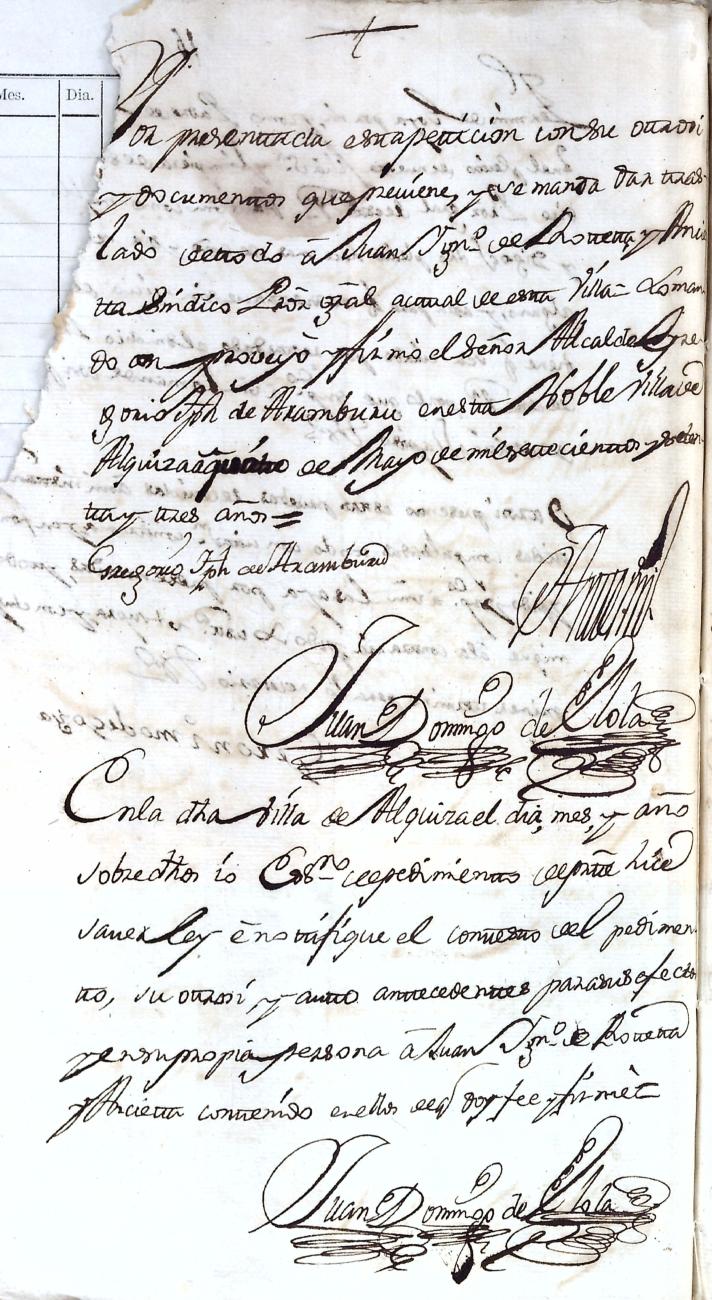 Mes.
Dia.
Por presenttada esta pettición con su ottrosi
y documenttos que previene, y se manda dar tras-
lado de ttodo â Juan Ygn.º de Rovetta y Arci-
tta Síndico Prõr grâl acttual de estta Villa= Lo man-
do provejò y firmo el Señor Alcalde Gre-
gorio Jph de Aramburu en estta Noble Villa de
Alquiza â de Mayo de mil settecienttos y seten-
tta y ttres años=
Gregorio Jph de Aramburu
Juan Domingo de Elola
En la dha Villa de Alquiza el dia, mes, y año
sobredhos io el Ess.no de pedimientto de partte hice
saver ley ê nottifique el conttestto del pedimen-
tto, su ottrosi, y autto anttecedenttes para sus efectos
y en su propia persona â Juan Ygn.º de Rovetta
y Arcietta conttenido en ellos de q̃ doy fee y firmè=
Juan Domingo de Elola